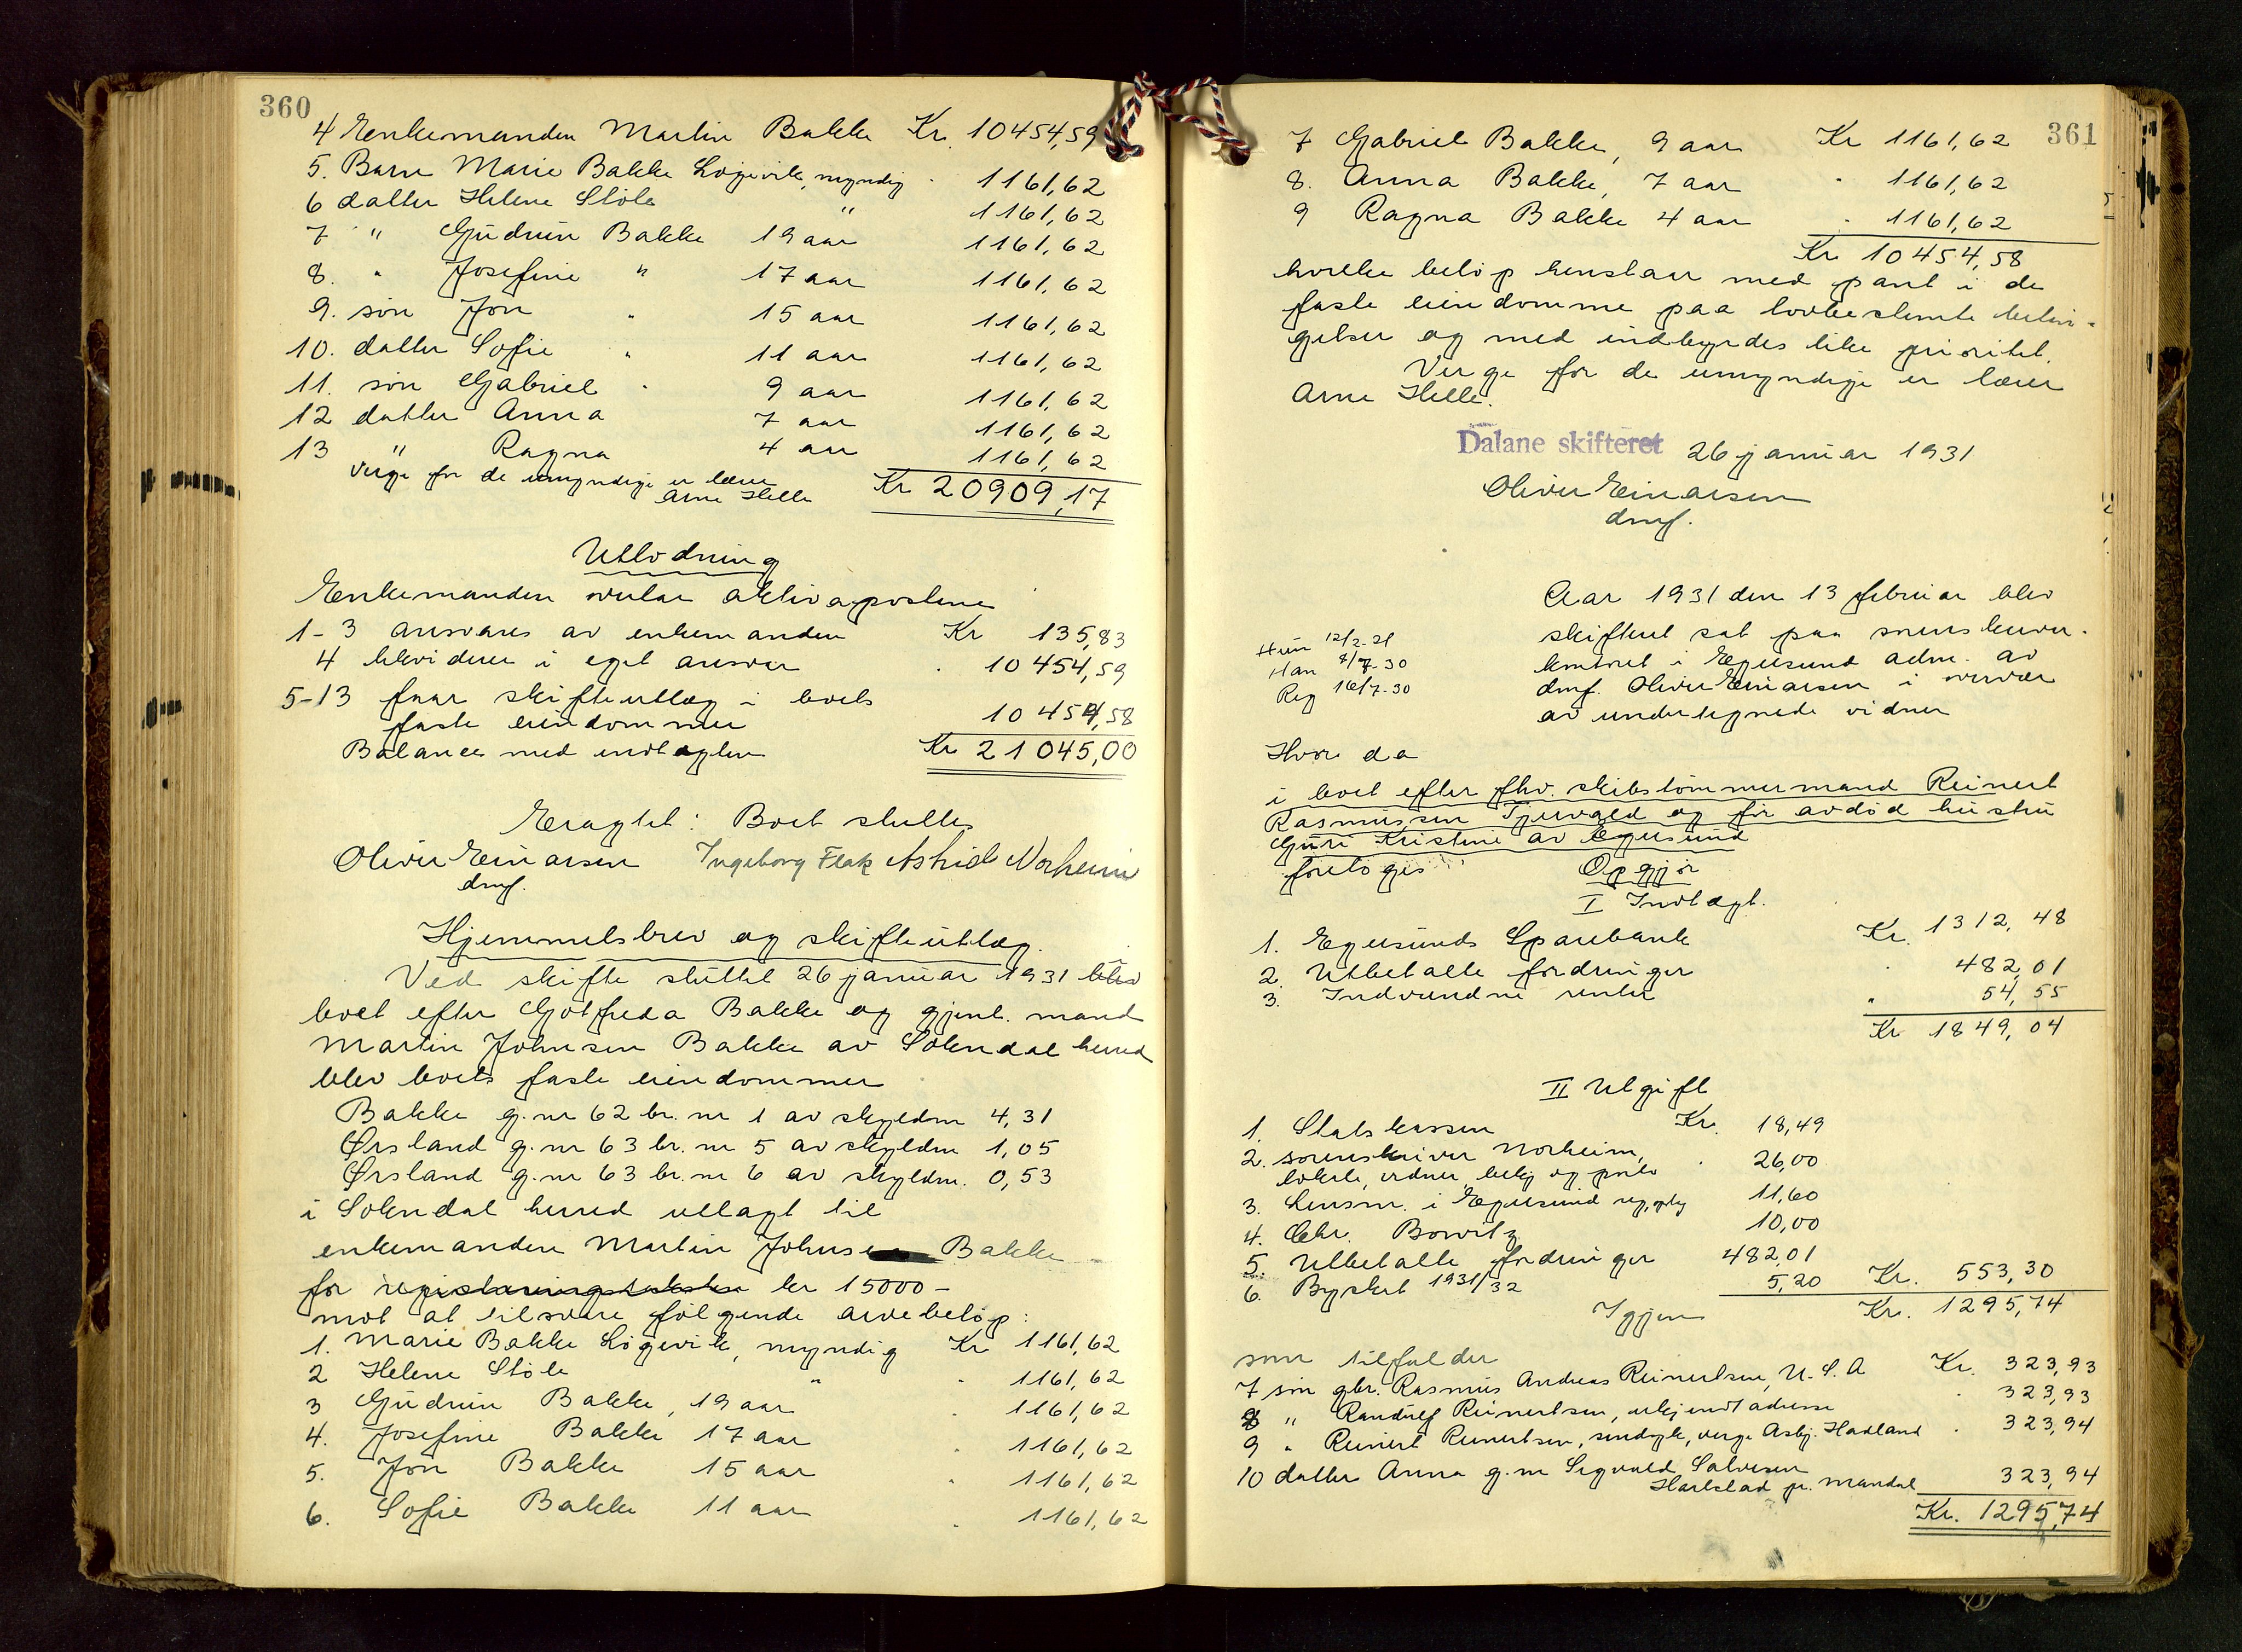 360
4 Enkemanden Martin Bakke Kr. 10454,59
5. Barn Marie Bakke Løgevik, myndig " 1161,62
6 datter Helene Støle " 1161,62
7 " Gudrun Bakke 19 aar 1161,62
8. " Josefine " 17 aar 1161,62
9. søn Jon " 15 aar 1161,62
10. datter Sofie " 11 aar 1161,62
11. søn Gabriel " 9 aar 1161,62
12 datter Anna 7 aar 1161,62
13 " Ragna 4 aar 1161,62
Verge for de umyndige er lærer
Arne Helle Kr 20909,17
Utlodning
Enkemanden overtar aktivapostene
1-3 ansvares av enkemanden Kr 135,83
4 likviderer i eget ansvar " 10454,59
5-13 faar skifteutlæg i boets
faste eiendommer 10454,58
Balancer med indtægten Kr 21045,00
Eragtet: Boet sluttes
Oliver Einarsen Ingeborg Flak Astrid Norheim
dmf.
Hjemmelsbrev og skifteutlæg.
Ved skifte sluttet 26 januar 1931 i
boet efter Gotfreda Bakke og gjenl. mand
Martin Johnsen Bakke av Sokndal herred
blev boets faste eiendommer
Bakke g.nr 62 br.nr 1 av skyldm 4,31
Ørsland g.nr 63 br.nr 5 av skyldm 1,05
Ørsland g.nr 63 br.nr 6 av skyldm. 0,53
i Sokndal herred utlagt til
enkemanden Martin Johnsen Bakke
for registreringstaksten kr 15000-
mot at tilsvare følgende arvebeløp:
1. Marie Bakke Løgevik, myndig Kr 1161,62
2 Helene Støle " " 1161,62
3 Gudrun Bakke, 19 aar " 1161,62
4. Josefine Bakke 17 aar " 1161,62
5. Jon Bakke 15 aar " 1161,62
6. Sofie Bakke 11 aar " 1161,62
361
7 Gabriel Bakke, 9 aar Kr 1161,62
8. Anna Bakke, 7 aar " 1161,62
9 Ragna Bakke 4 aar " 1161,62
Kr 10454,58
hvilke beløp henstaar med pant i de
faste eiendomme paa lovbestemte betin-
gelser og med indbyrdes like prioritet.
Verge for de umyndige er lærer
Arne Helle.
Dalane skifteret 26 januar 1931
Oliver Einarsen
dmf.
Aar 1931 den 13 februar blev
skifteret sat paa sorenskriver-
kontoret i Egersund adm. av
dmf. Oliver Einarsen i overvær
av undertegnede vidner
Hun 12/2-21
Han 8/7-30
Reg 16/7-30
Hvor da
i boet efter fhv. skibstømmermand Reinert
Rasmussen Tjervald og før avdød hustru
Guri Kristine av Egersund
foretoges Opgjør
I Indtægt.
1. Egersunds Sparebank Kr. 1312,48
2. Utbetalte fordringer " 482,01
3. Indvundne renter " 54,55
Kr 1849,04
II Utgift
1. Statskassen Kr. 18,49
2. sorenskriver Norheim, " 26,00
lokale, vidner, bekj og porto
3. Lensm. i Egersund 11,60
4. Chr. Bowitz 10,00
5. Utbetalte fordringer 482,01
6. Byskat 1931/32 5,20 Kr. 553,30
Igjen Kr. 1295,74
som tilfalder
7 søn gbr. Rasmus Andreas Reinertsen, U.S.A Kr. 323,93
8 " Randulf Reinertsen, ukjendt adresse " 323,93
9 " Reinert Reinertsen, sindsyk, verge Asbj. Hadland " 323,94
10 datter Anna g.m Sigvald Salvesen
Harkstad pr. Mandal 323,94
Kr. 1295,74